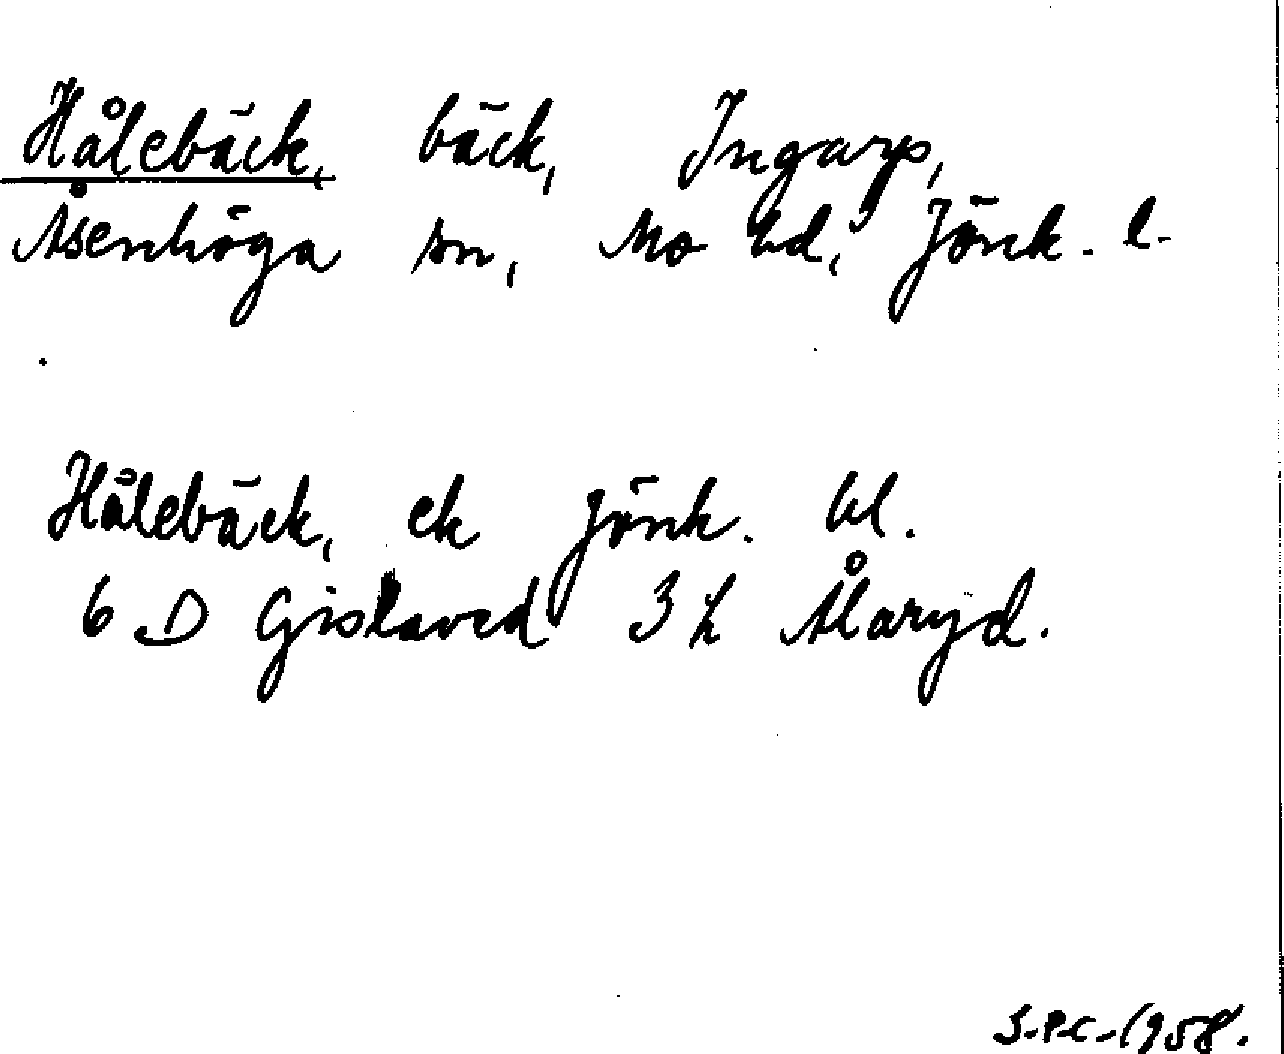 Hålebäck, bäck, Ingarp,
Åsenhöga sn, Mo hd, Jönk. l.
Hålebäck, ek Jönk. bl.
6 D Gislaved 3 h Ålaryd.
S.P.C. 1958.